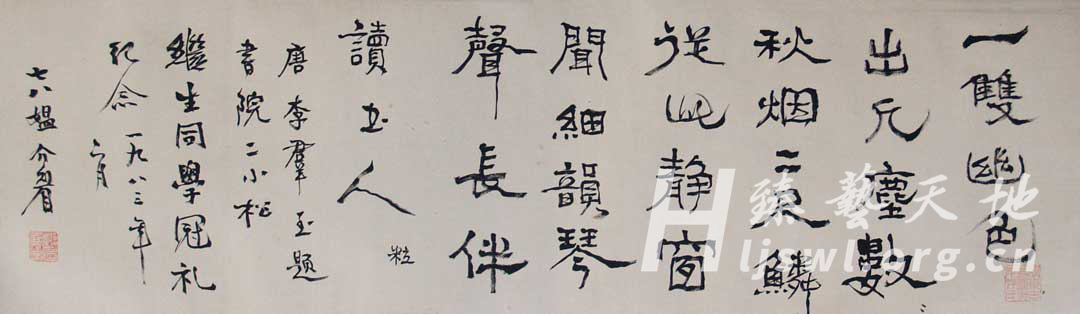 一雙幽色
出凡塵數
秋烟二尺鱗
從此静窗
聞細韻琴
聲長伴
讀書人 粒
唐李羣玉題
書院二小松
繼生同學冠礼
紀念 一九八三年
月
七八媼介眉
臻藝天地
Hljswl.org.cn